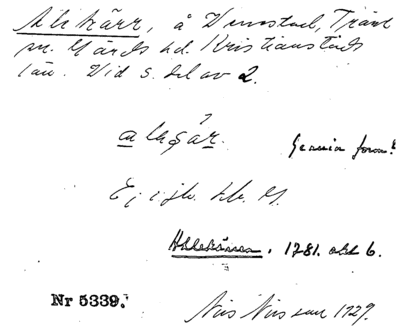 Alekärr, å Vinnstad, Träne
sn. Gärds hd. Kristianstads
län. Vid s. del av 2.
Genuin form?
Ej i jb. hb. G.
Allekärren. 1781. akt 6.
Nr 5339.
Nils Nilsson 1929.